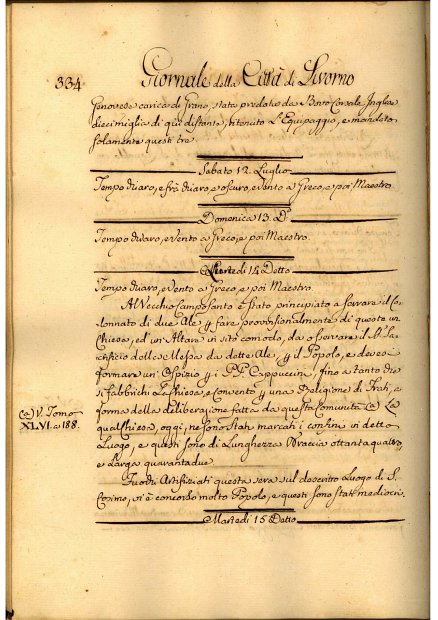 334
Giornale della Città di Livorno
Genovese carica di Grano, stata predata da Bmto Corsale Inglese
dieci miglia di quì distante, ritenuto l'Equipaggio, e mandato
solamente questi tre.
Sabato 12. Luglio
Tempo chiaro, e frà chiaro, e oscuro, e vento a Greco, e poi Maestro.
Domenica 13. Do
Tempo chiaro, e Vento a Greco, e poi Maestro.
di 14 Detto
Tempo chiaro, e Vento a Greco, e poi Maestro.
Al Vecchio Campo Santo è stato principiato a serrare il Co-
lonnato di due Ale p fare provisionalmente di queste un
Chiesa, ed un' Altare in sito comodo, da osservare il S. Sa-
crifizio della Messa da dette Ale, p il Popolo, e deve
formare un' Ospizio p i PP. Cappuccini, fino a tanto che
si fabbrichi la Chiesa, e Convento p una Religione di Frati, a
forma della deliberazione fatta da questa Comunità (a) La
qual Chiesa, oggi, ne sono stati marcati i confini in detto
Luogo, e questi sono di Lunghezza Braccia ottanta quattro,
e Larga quarantadue.
Fuochi Artifiziati questa sera sul descritto Luogo di S.
Cosimo, vi è concorso molto Popolo, e questi sono stati mediocri.
Martedì 15 Detto
(a) V. Tomo
XLVI. a 188.